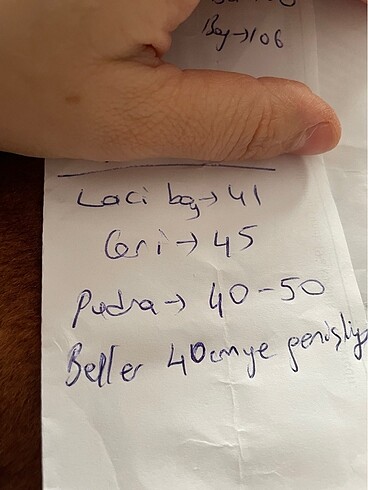 Boy→106
Laci boy→41
Geri→45
Pudra→40-50
Beller 40cmye genişliy